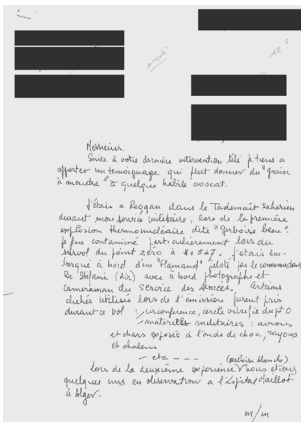 Monsieur.
Suite à votre dernière intervention télé je tiens à
apporter un témoignage qui peut donner du "grain
à moudre" à quelque habile avocat.
J'étais à Reggan dans le Saharien
durant mon service militaire, lors de la première
explosion thermonucléaire dite "Gerboise bleue".
Je fus contaminé particulièrement lors du
survol du point zéro à H+ J'étais em-
barqué à bord d'un "Flamand" piloté par le commandant
De (Air) avec à bord photographe et
cameraman du Service des Certains
clichés utilisés lors de l'émission furent pris
durant ce vol : circonférence, cercle vitrifié du pt 0
matériels militaires : avions
et chars exposés à l'onde de choc, rayons
et chaleur
etc - - - (gerboise blanche)
Lors de la deuxième expérience nous étions
quelques uns en observation à l'hôpital Maillot
à Alger.